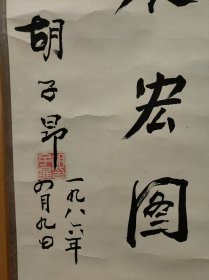 宏图
胡子昂
一九八六年
四月九日